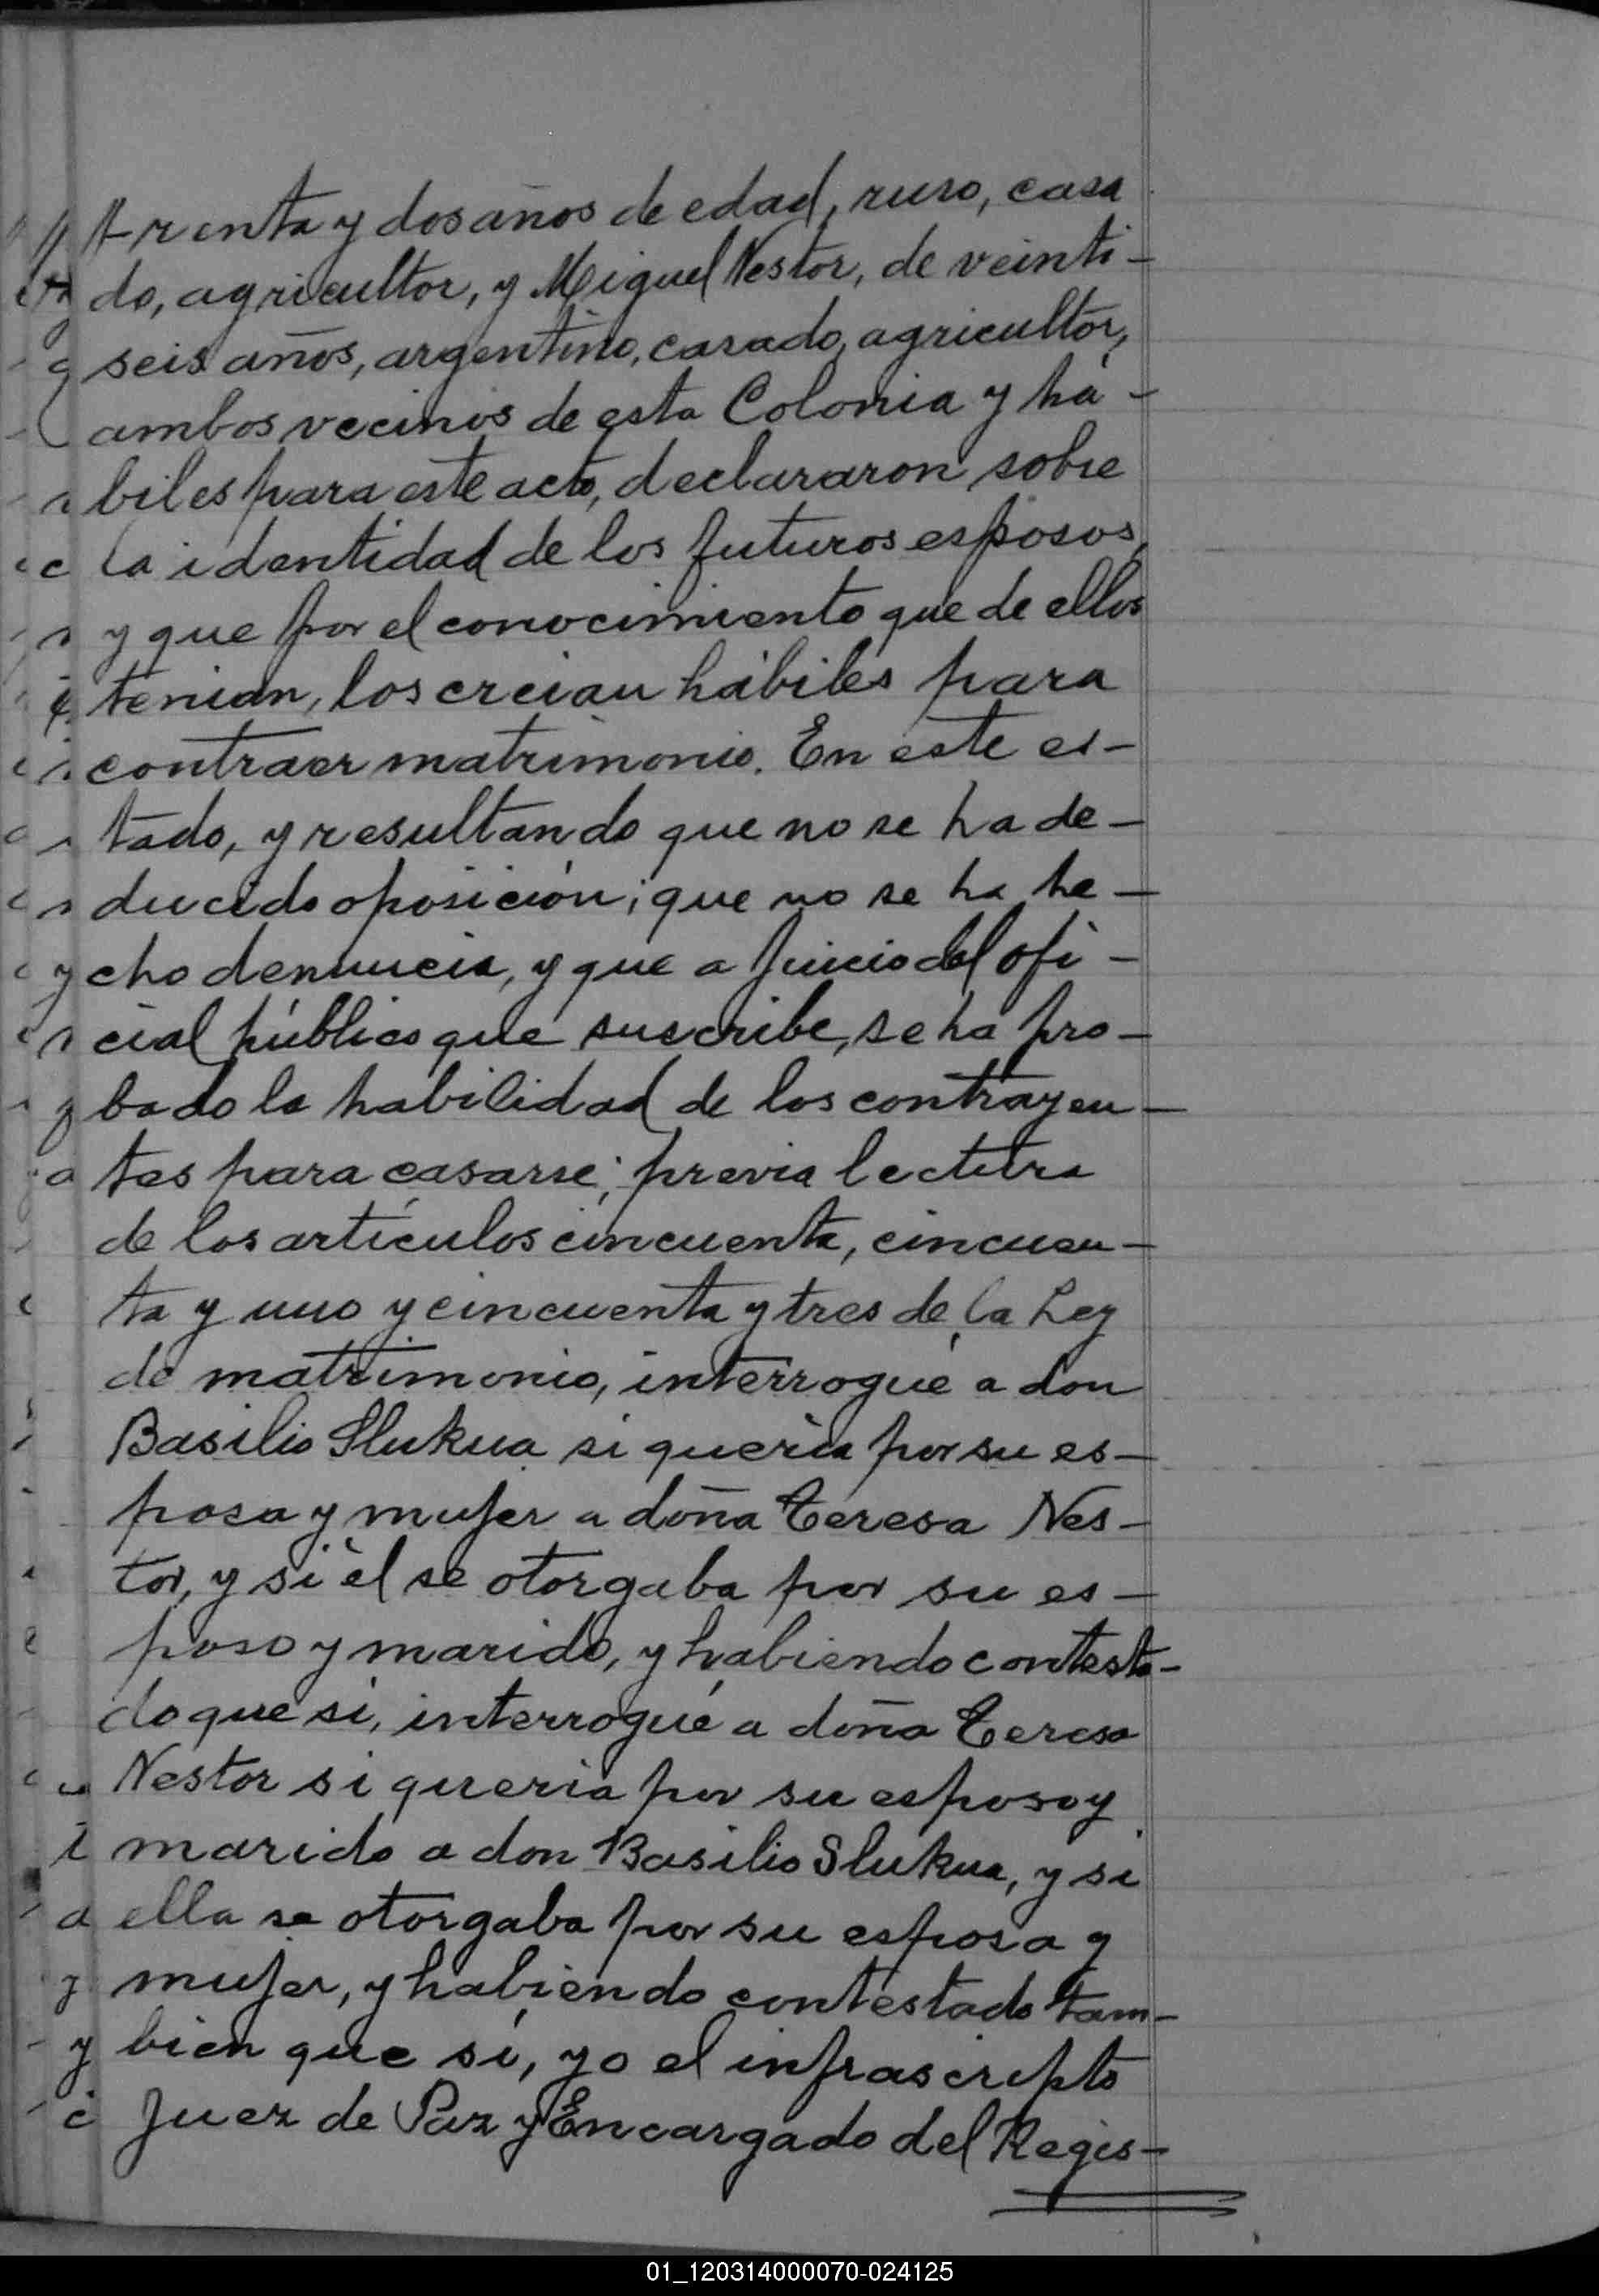 trenta y dos años de edad, ruso, casa
do, agricultor, y Miguel Nestor, de veinti-
seis años, argentino, casado, agricultor,
ambos vecinos de esta Colonia y há-
biles para este acto, declararon sobre
la identidad de los futuros esposos,
y que por el conocimiento que de ellos
tenian, los creian hábiles para
contraer matrimonio. En este es-
tado, y resultando que no se ha de-
ducido oposición; que no se ha he-
cho denuncia, y que a juicio del ofi-
cial público que suscribe, se ha pro-
bado la habilidad de los contrayen-
tes para casarse; previa lectura
de los artículos cincuenta, cincuen-
ta y uno y cincuenta y tres de la Ley
de matrimonio, interrogué a don
Basilio Slukua si queria por su es-
posa y mujer a doña Teresa Nes-
tor, y si él se otorgaba por su es-
poso y marido, y habiendo contesta-
do que si, interrogué a doña Teresa
Nestor si queria por su esposo y
marido a don Basilio Slukua, y si
ella se otorgaba por su esposa y
mujer, y habiendo contestado tam-
bien que sí, yo el infrascripto
Juez de Paz y Encargado del Regis-
01_120314000070-024125